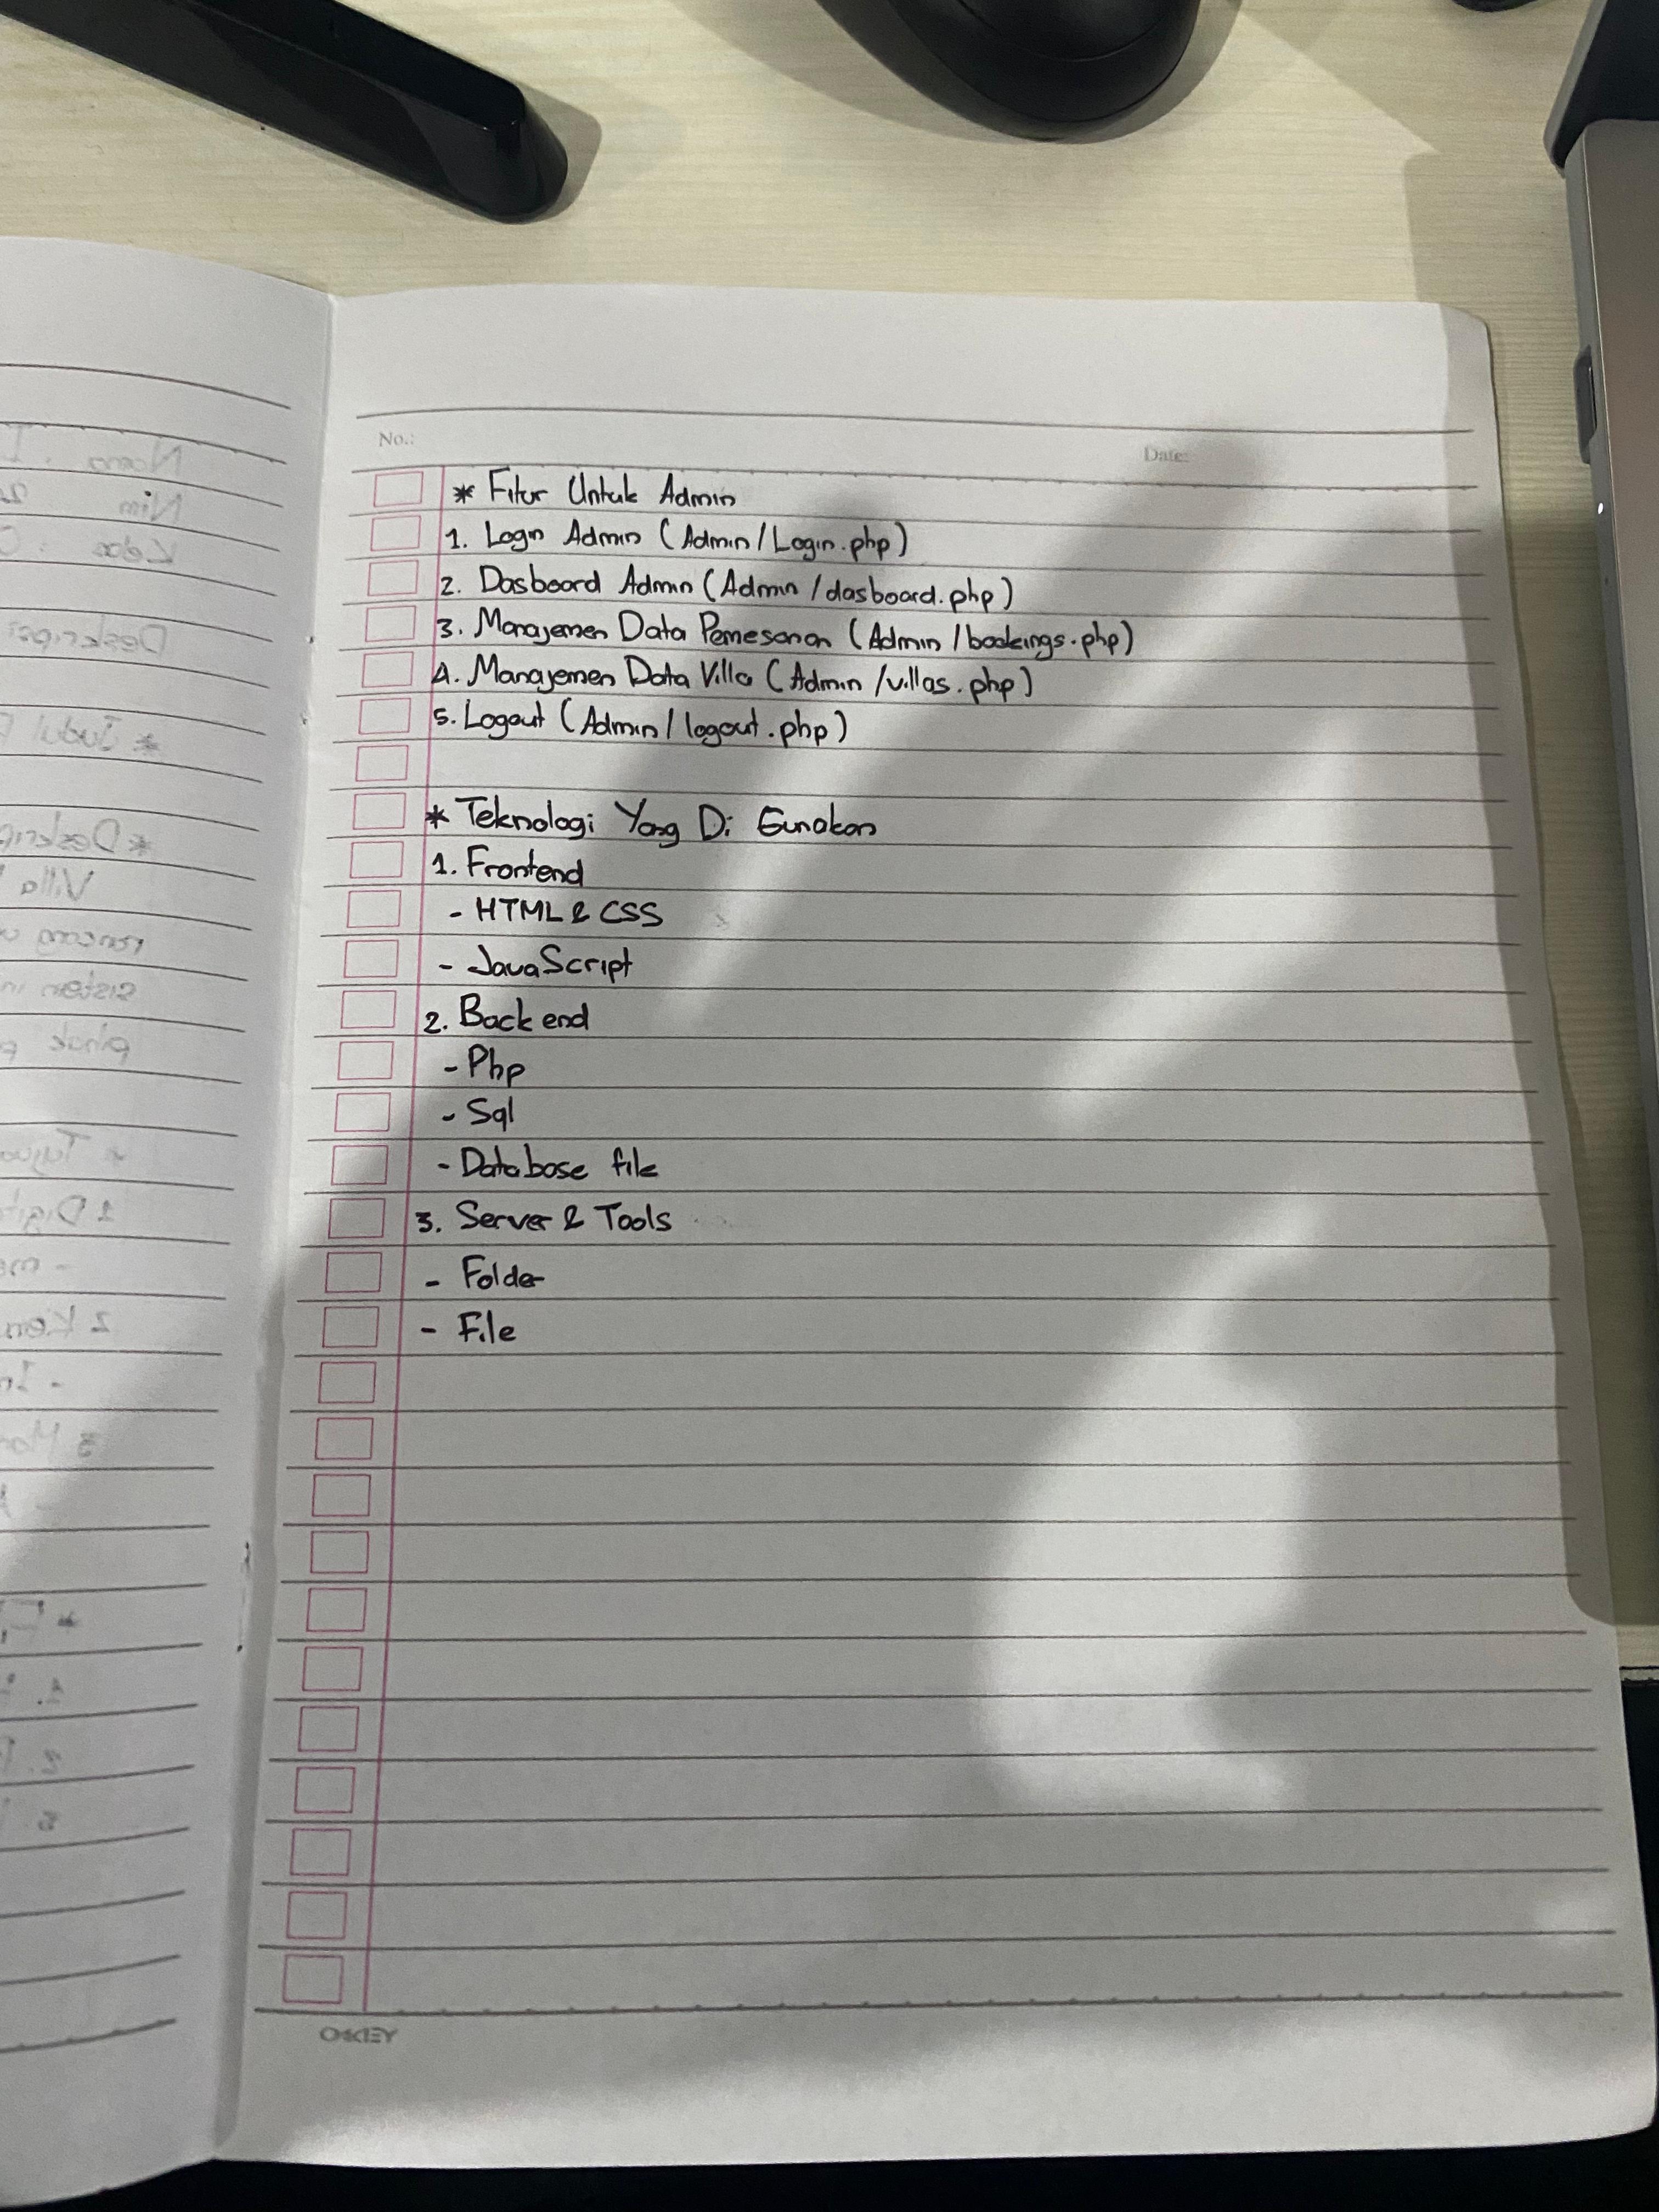 No.:
Date:
* Fitur Untuk Admin
1. Login Admin (Admin/Login.php)
2. Dasboard Admin (Admin/dasboard.php)
3. Manajemen Data Pemesanan (Admin/bookings.php)
4. Manajemen Data Villa (Admin/villas.php)
5. Logout (Admin/logout.php)
* Teknologi Yang Di Gunakan
1. Frontend
- HTML & CSS
- JavaScript
2. Back end
- Php
- Sql
- Database file
3. Server & Tools
- Folder
- File